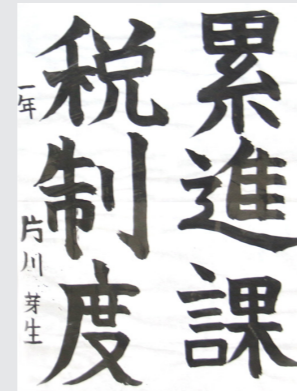 累進課
税制度
一年 片川 芽生